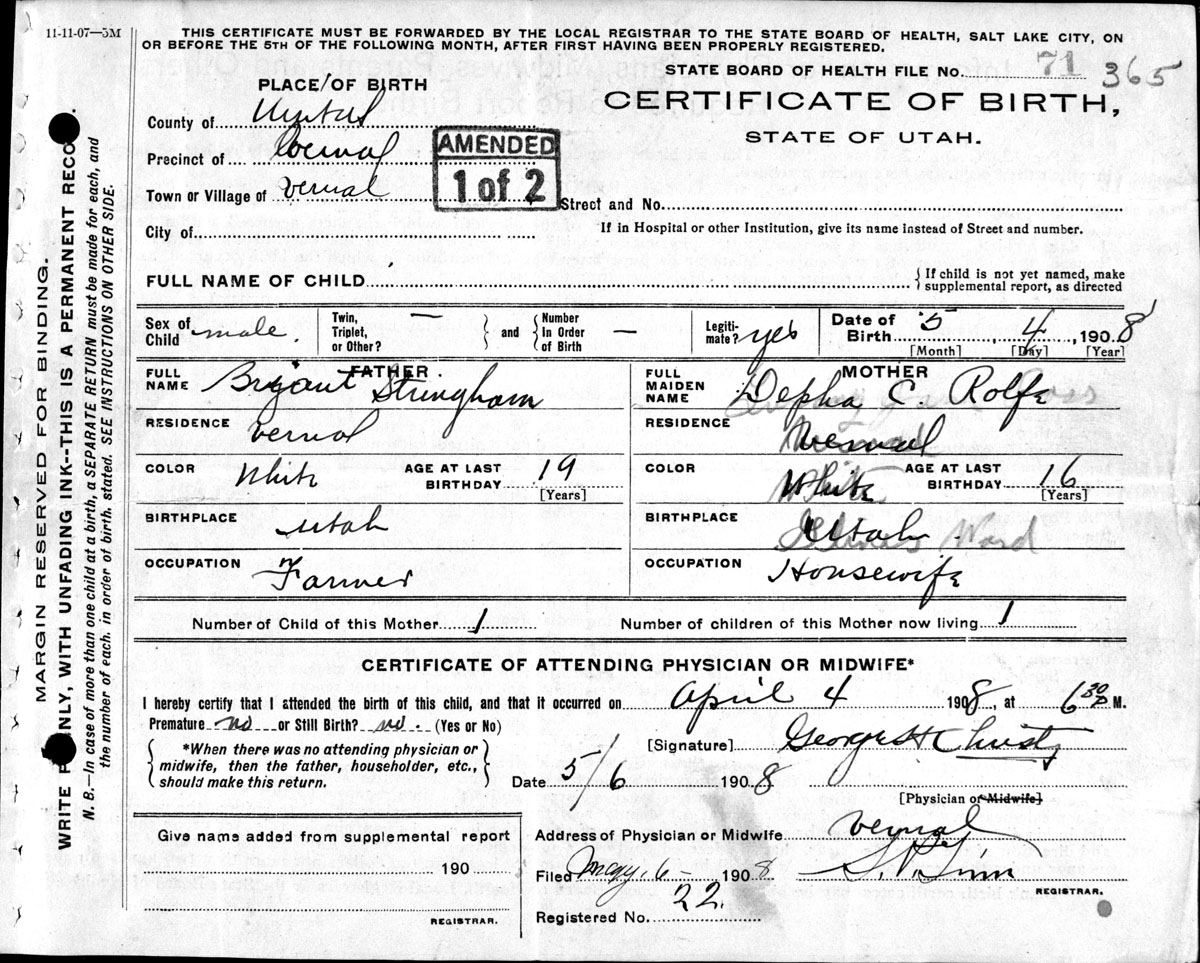 11-11-07—5M
THIS CERTIFICATE MUST BE FORWARDED BY THE LOCAL REGISTRAR TO THE STATE BOARD OF HEALTH, SALT LAKE CITY, ON
OR BEFORE THE 5TH OF THE FOLLOWING MONTH, AFTER FIRST HAVING BEEN PROPERLY REGISTERED.
STATE BOARD OF HEALTH FILE No. 71 365
PLACE OF BIRTH
CERTIFICATE OF BIRTH,
STATE OF UTAH.
County of Uintah
Precinct of Vernal
AMENDED
1 of 2
Town or Village of Vernal
Street and No.
City of
If in Hospital or other Institution, give its name instead of Street and number.
FULL NAME OF CHILD
{If child is not yet named, make
supplemental report, as directed
Sex of Child male.
Twin, Triplet, or Other? — } and {Number In Order of Birth —
Legiti- mate? yes
Date of Birth 5, 4, 1908
[Month] [Day] [Year]
FATHER.
FULL NAME Bryant Stringham
RESIDENCE Vernal
COLOR White AGE AT LAST BIRTHDAY 19 [Years]
BIRTHPLACE Utah
OCCUPATION Farmer
MOTHER
FULL MAIDEN NAME Depha C. Rolfe
RESIDENCE Vernal
COLOR White AGE AT LAST BIRTHDAY 16 [Years]
BIRTHPLACE Utah Ward
OCCUPATION Housewife
Number of Child of this Mother 1 Number of children of this Mother now living 1
CERTIFICATE OF ATTENDING PHYSICIAN OR MIDWIFE*
I hereby certify that I attended the birth of this child, and that it occurred on April 4 1908, at 6 30 P M.
Premature no or Still Birth? no. (Yes or No)
{*When there was no attending physician or
midwife, then the father, householder, etc.,
should make this return.}
[Signature] George H Christy
Date 5/6 1908
[Physician or Midwife]
Give name added from supplemental report
190
REGISTRAR.
Address of Physician or Midwife Vernal
Filed May 6- 1908
REGISTRAR.
Registered No. 22.
MARGIN RESERVED FOR BINDING.
WRITE NLY, WITH UNFADING INK--THIS IS A PERMANENT RECO
N. B.—In case of more than one child at a birth, a SEPARATE RETURN must be made for each, and
the number of each, in order of birth, stated. SEE INSTRUCTIONS ON OTHER SIDE.